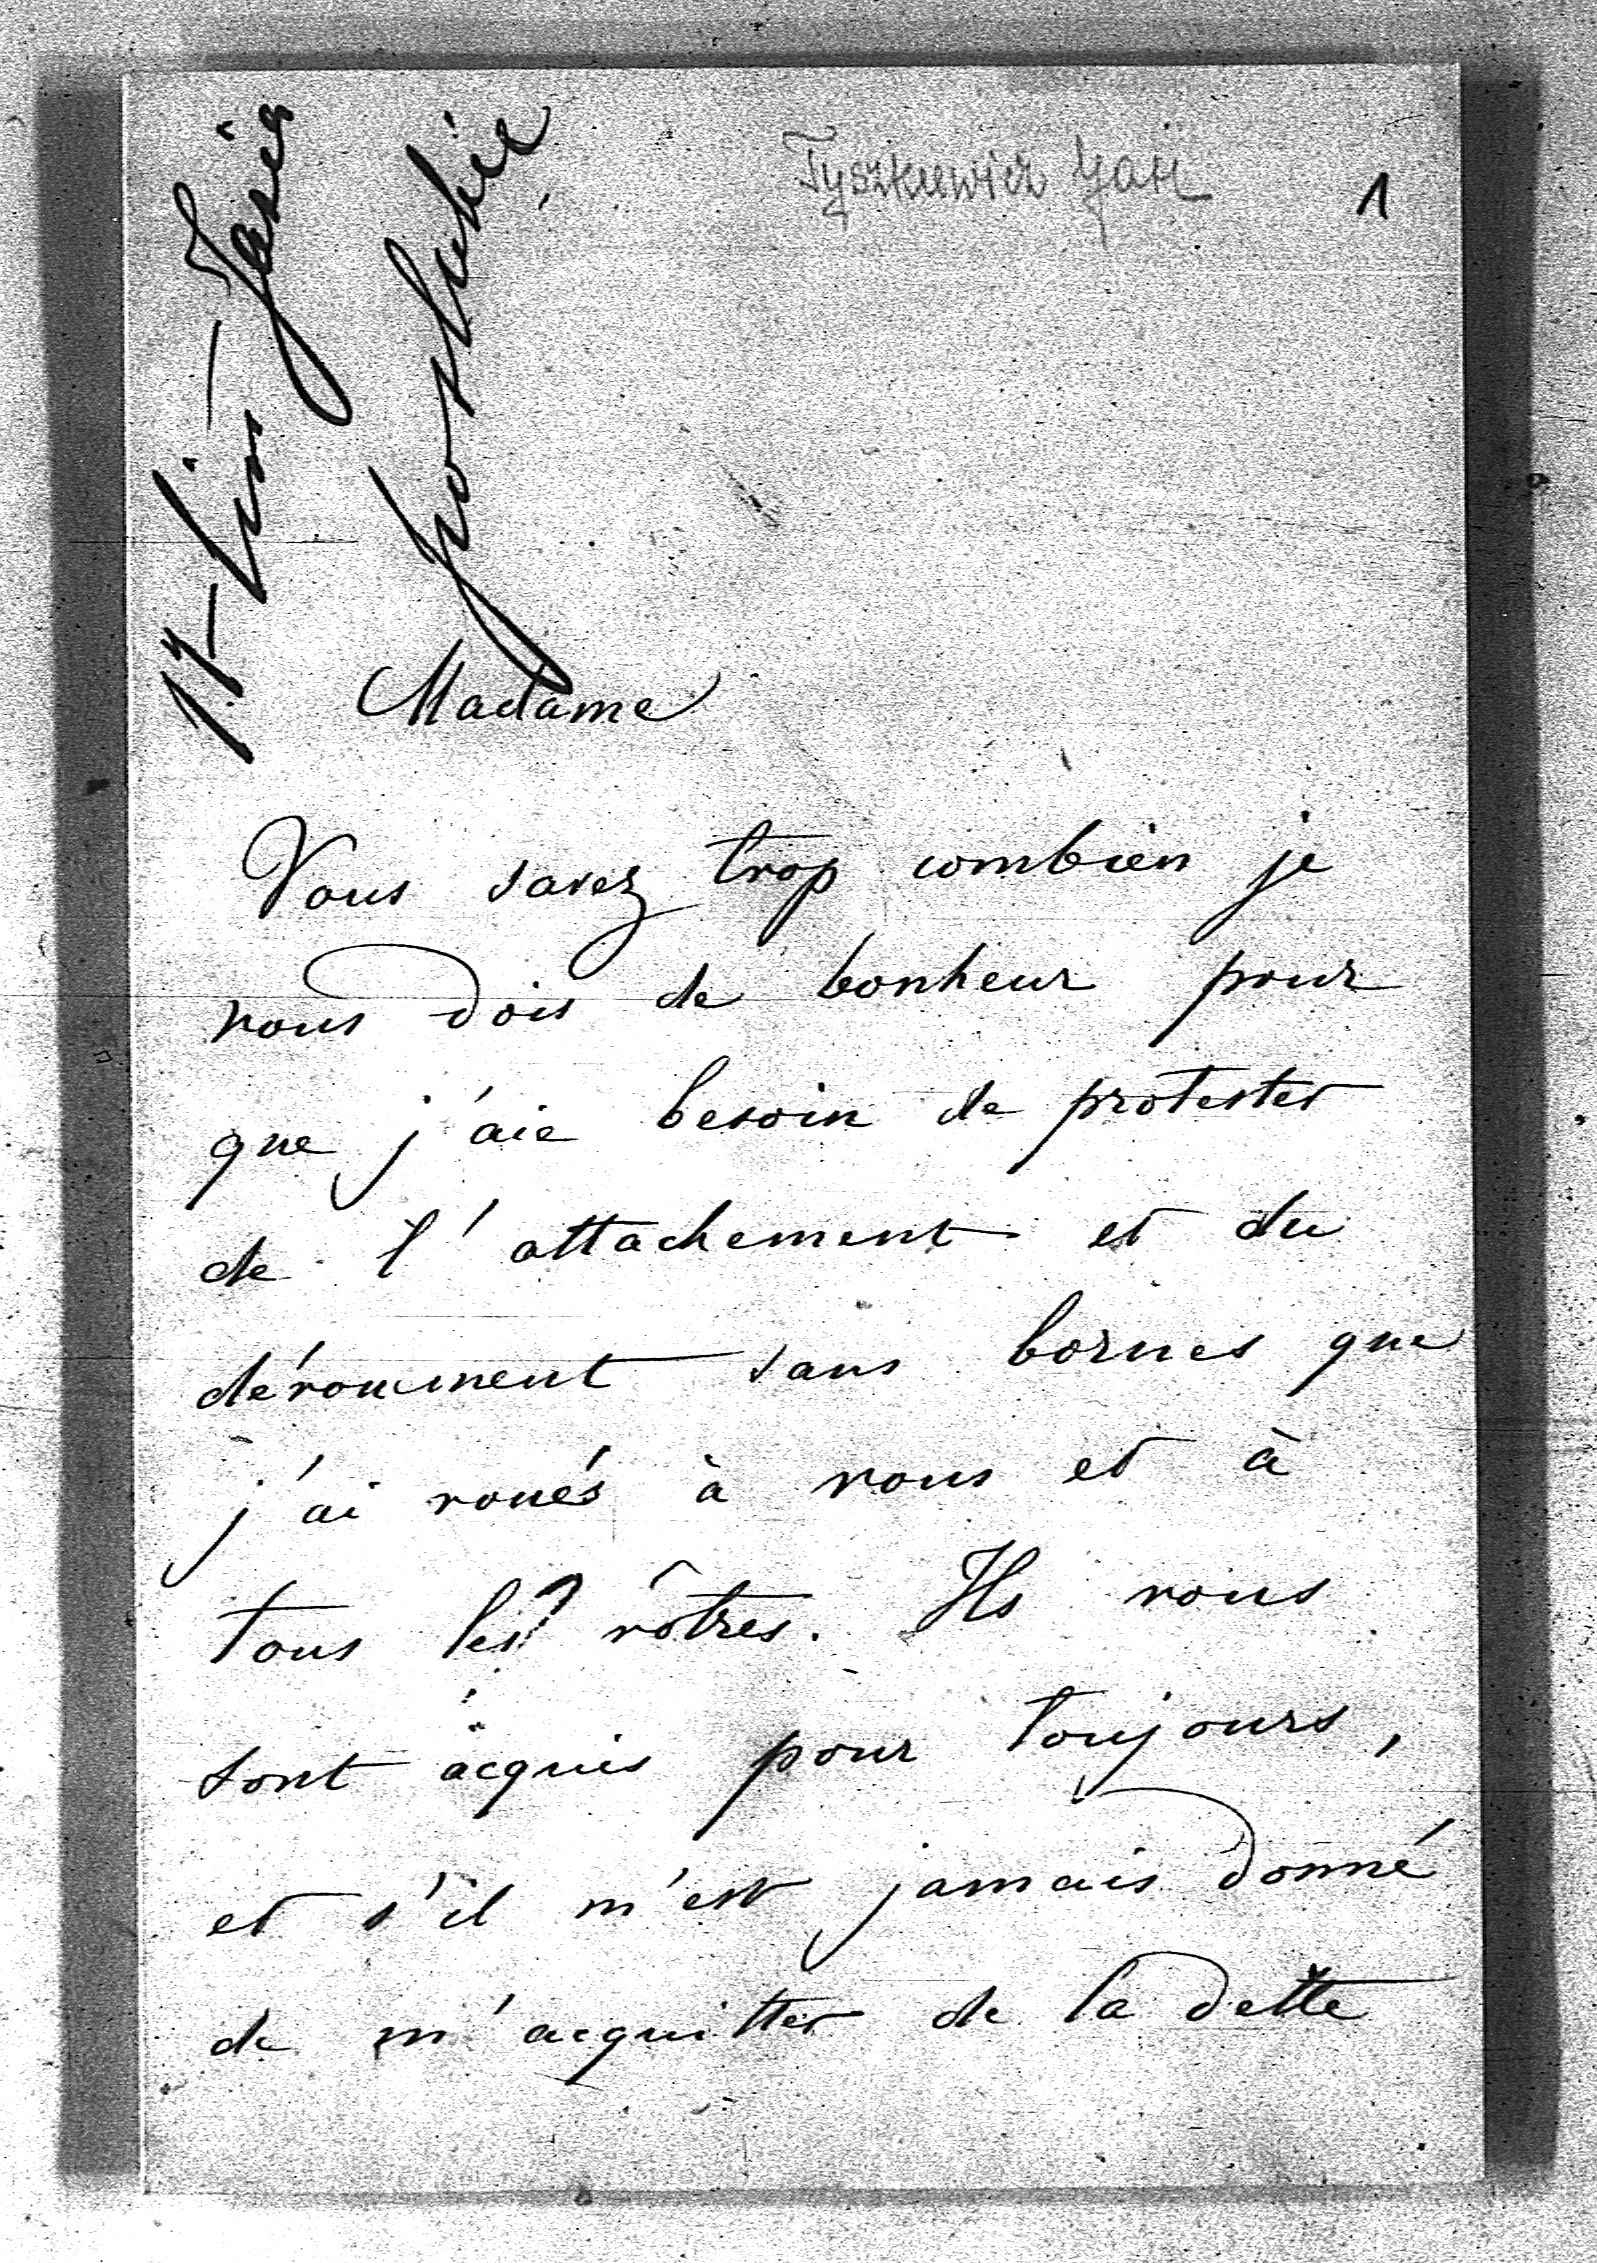 Tyszkiewicz Jan
1
17 - Jasia
Madame
Vous savez trop combien je
vous dois de bonheur pour
que j'aie besoin de protester
de l'attachement et du
dévouement sans bornes que
j'ai voués à vous et à
tous les vôtres. Ils vous
sont acquis pour toujours,
et s'il m'est jamais donné
de m'acquitter de la dette